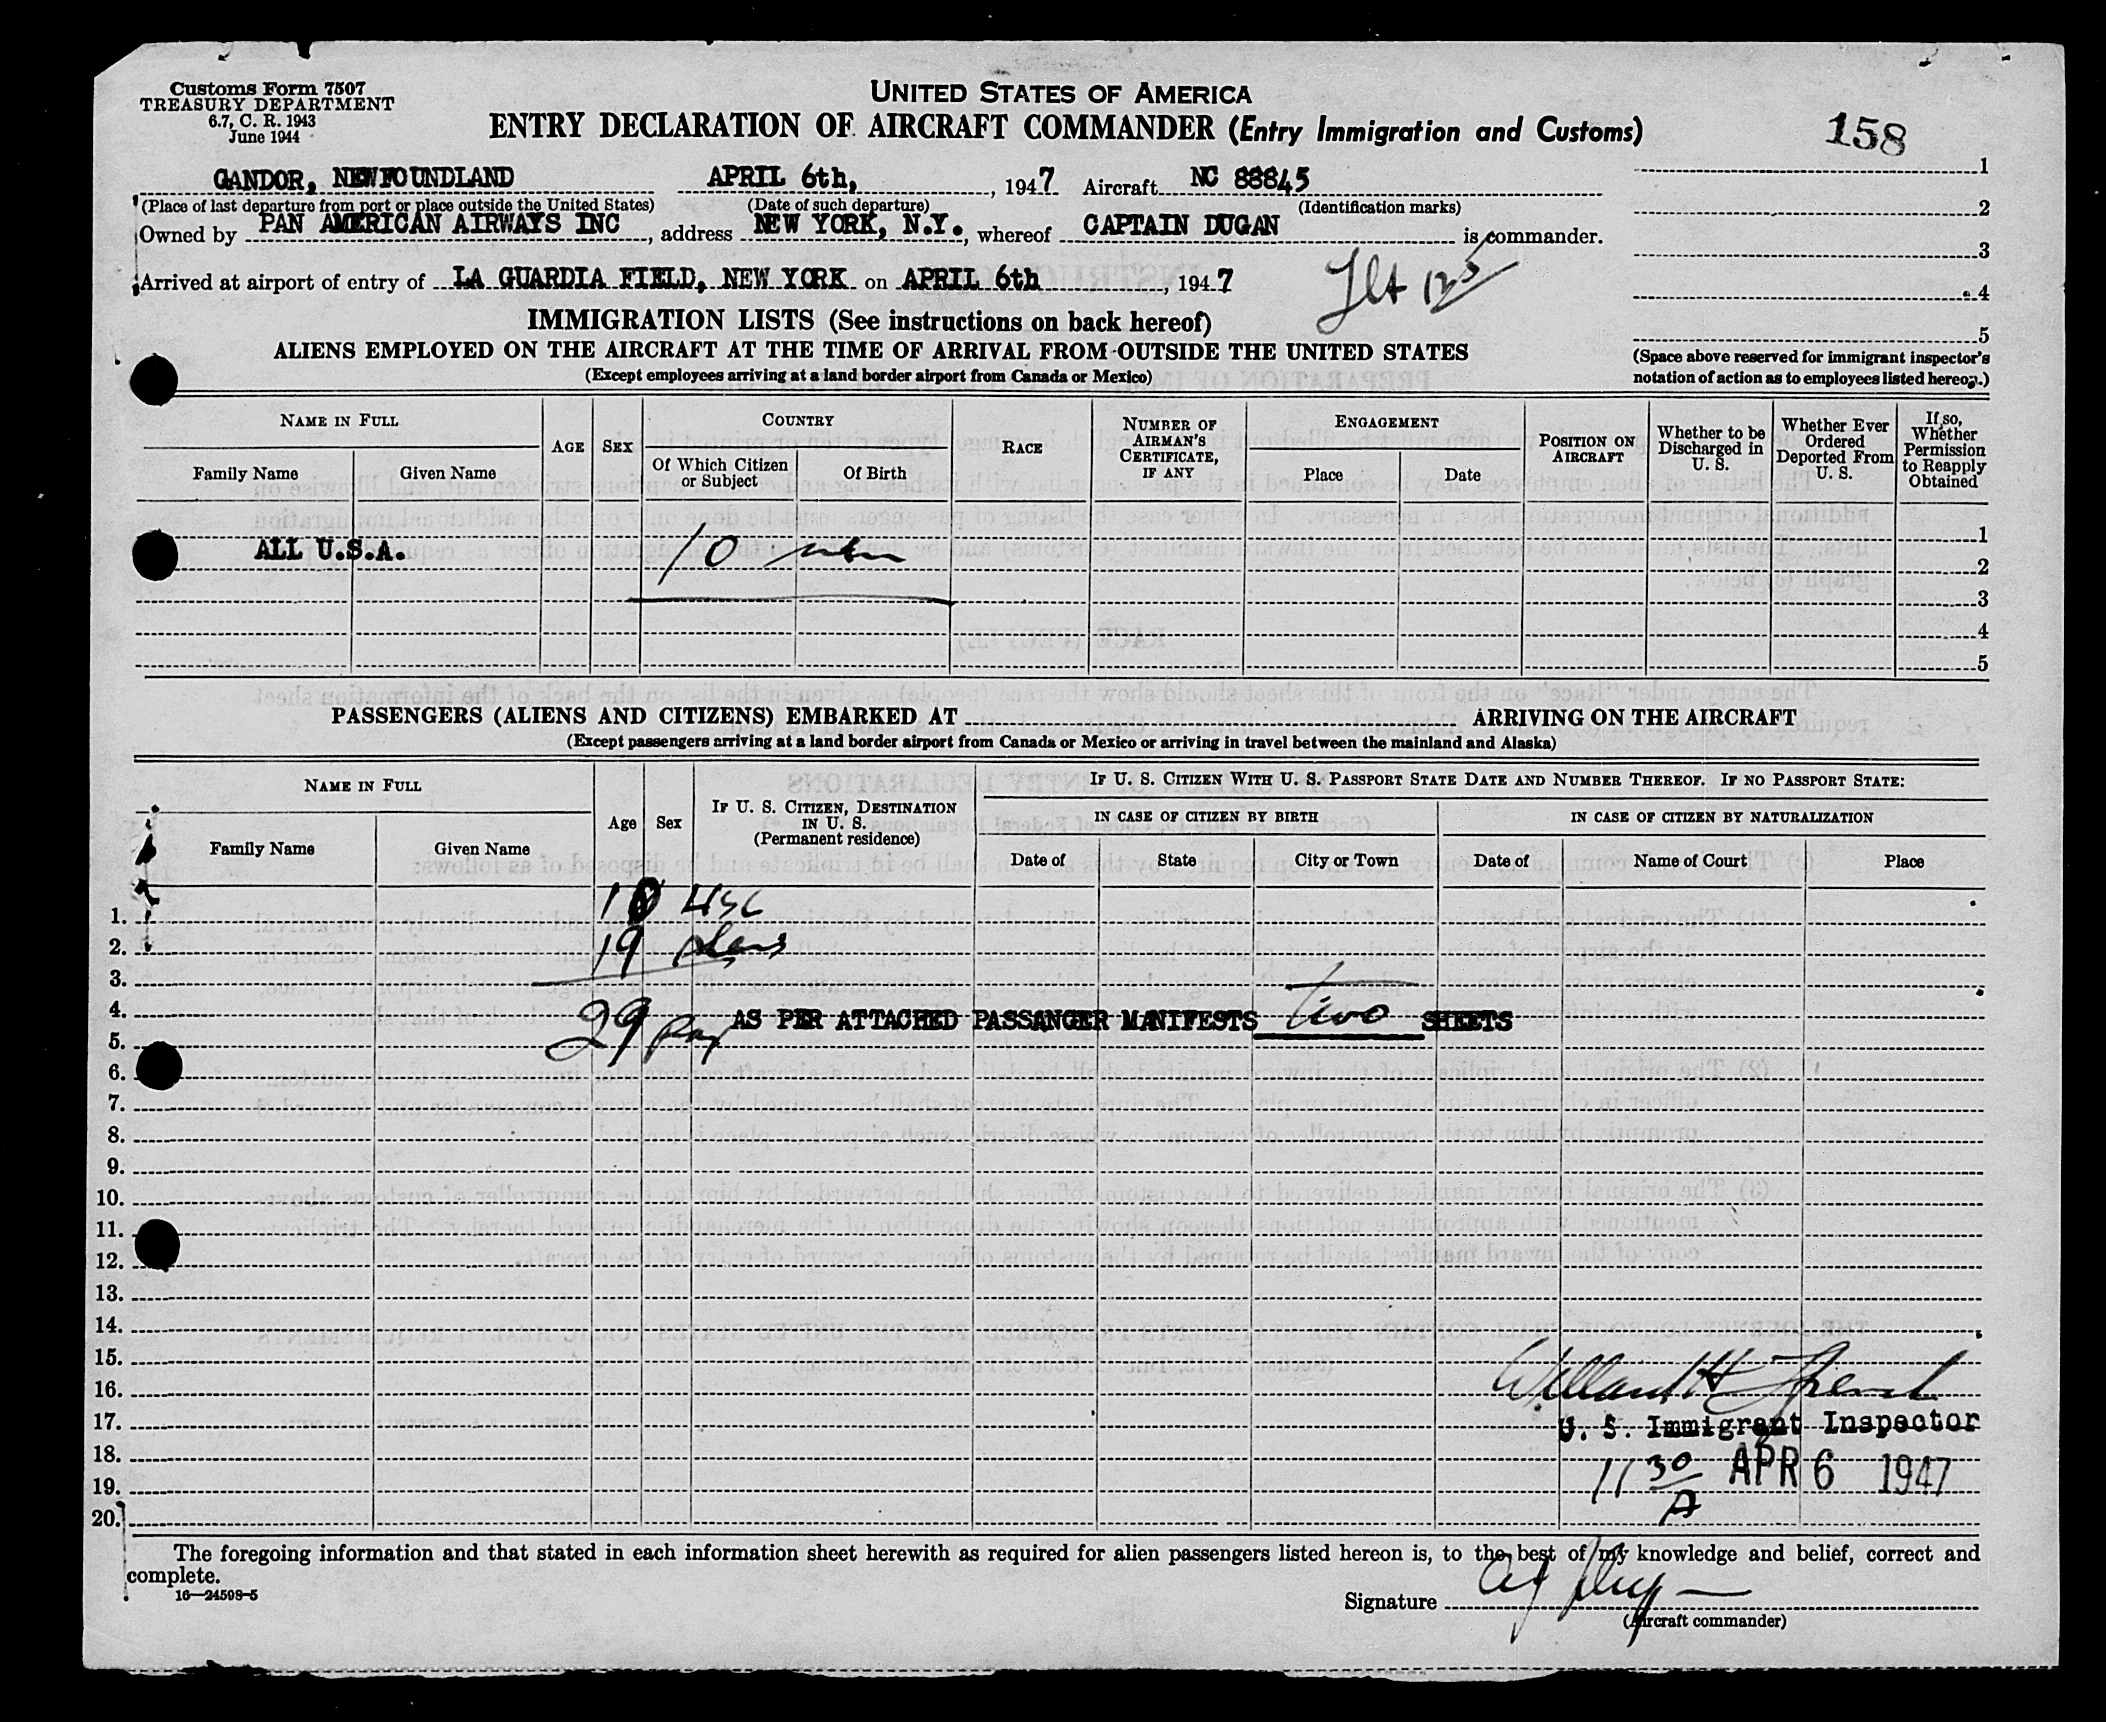 Customs Form 7507
TREASURY DEPARTMENT
6.7, C. R. 1943
June 1944
UNITED STATES OF AMERICA
ENTRY DECLARATION OF AIRCRAFT COMMANDER (Entry Immigration and Customs)
158
GANDOR, NEWFOUNDLAND APRIL 6th, , 1947 Aircraft NC 88845
(Place of last departure from port or place outside the United States) (Date of such departure) (Identification marks)
Owned by PAN AMERICAN AIRWAYS INC , address NEW YORK, N.Y. , whereof CAPTAIN DUGAN is commander.
Arrived at airport of entry of LA GUARDIA FIELD, NEW YORK on APRIL 6th , 1947
Flt
1
2
3
4
5
(Space above reserved for immigrant inspector's
notation of action as to employees listed hereon.)
IMMIGRATION LISTS (See instructions on back hereof)
ALIENS EMPLOYED ON THE AIRCRAFT AT THE TIME OF ARRIVAL FROM OUTSIDE THE UNITED STATES
(Except employees arriving at a land border airport from Canada or Mexico)
NAME IN FULL
Family Name
Given Name
AGE
SEX
COUNTRY
Of Which Citizen
or Subject
Of Birth
RACE
NUMBER OF
AIRMAN'S
CERTIFICATE,
IF ANY
ENGAGEMENT
Place
Date
POSITION ON
AIRCRAFT
Whether to be
Discharged in
U. S.
Whether Ever
Ordered
Deported From
U. S.
If so,
Whether
Permission
to Reapply
Obtained
1
ALL U.S.A. 10
2
3
4
5
PASSENGERS (ALIENS AND CITIZENS) EMBARKED AT ARRIVING ON THE AIRCRAFT
(Except passengers arriving at a land border airport from Canada or Mexico or arriving in travel between the mainland and Alaska)
NAME IN FULL
Family Name
Given Name
Age
Sex
IF U. S. CITIZEN, DESTINATION
IN U. S.
(Permanent residence)
IF U. S. CITIZEN WITH U. S. PASSPORT STATE DATE AND NUMBER THEREOF. IF NO PASSPORT STATE:
IN CASE OF CITIZEN BY BIRTH
IN CASE OF CITIZEN BY NATURALIZATION
Date of
State
City or Town
Date of
Name of Court
Place
1. 10 USC
2. 19 aliens
3.
4. 29 AS PER ATTACHED PASSANGER MANIFESTS two SHEETS
5.
6.
7.
8.
9.
10.
11.
12.
13.
14.
15.
16.
17. U. S. Immigrant Inspector
18.
19. 11 30 A APR 6 1947
20.
The foregoing information and that stated in each information sheet herewith as required for alien passengers listed hereon is, to the best of my knowledge and belief, correct and
complete.
16—24598-5
Signature
(Aircraft commander)